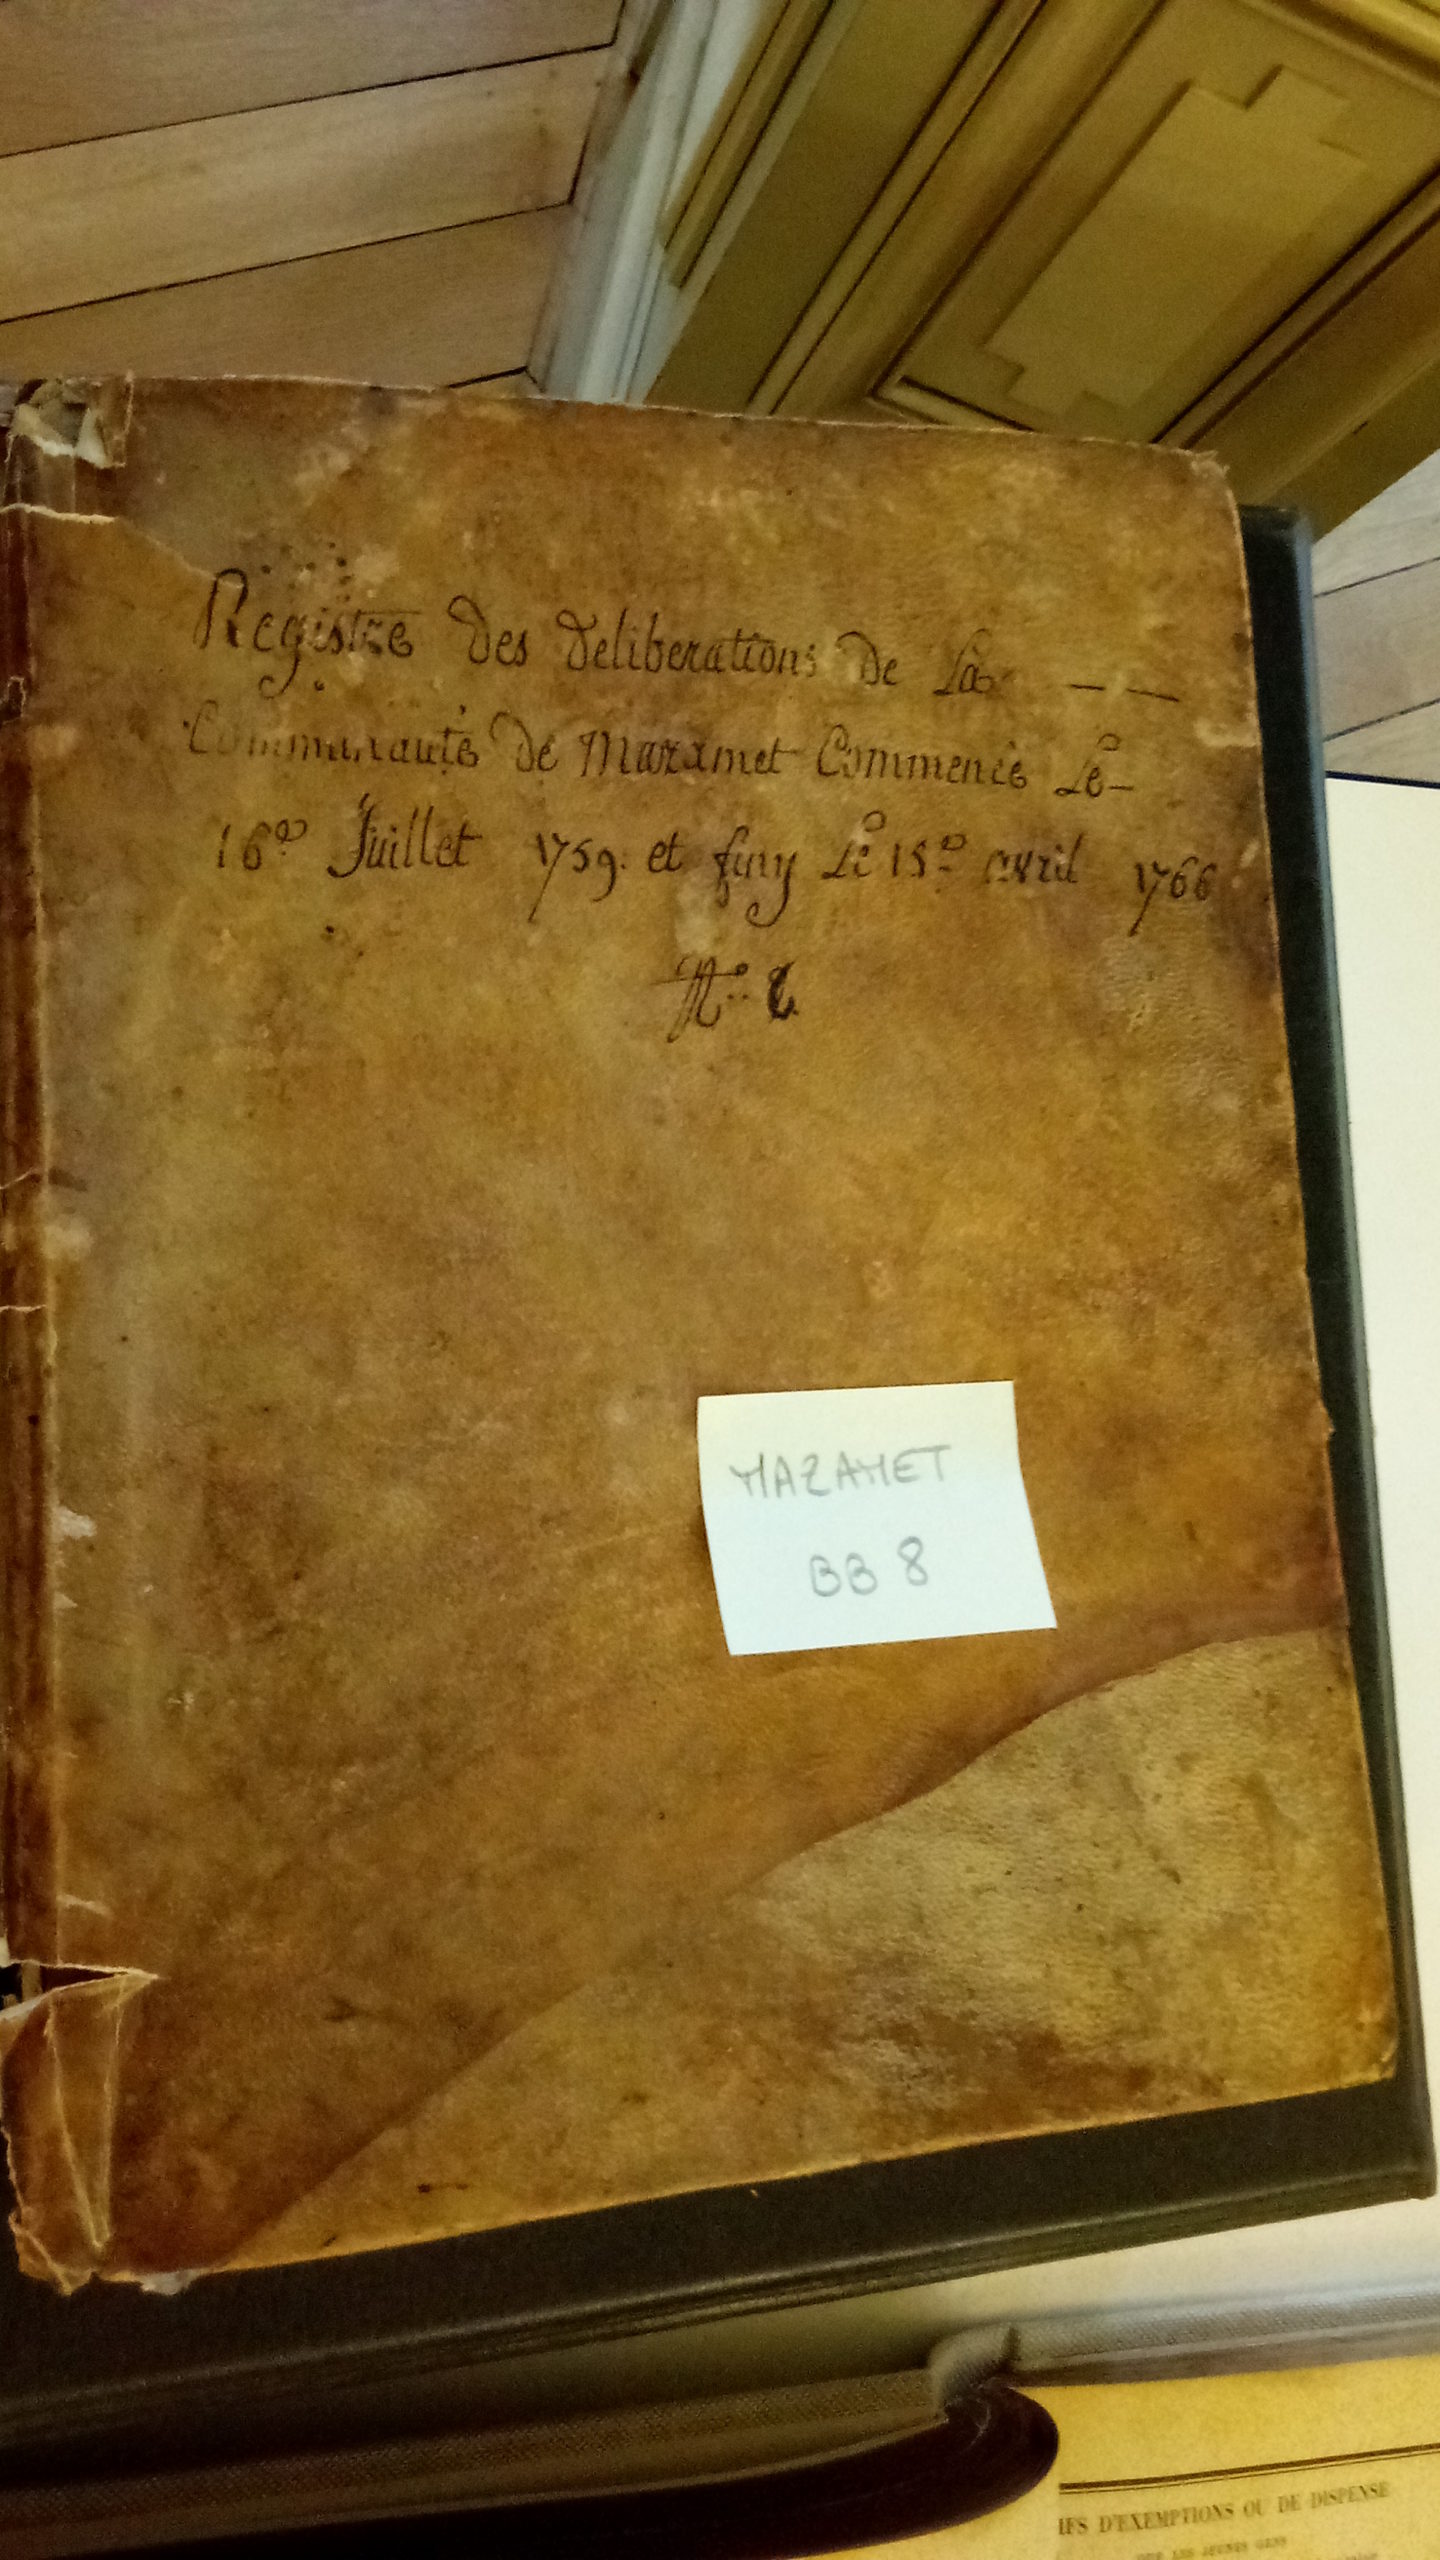 Registre des deliberations de La
Communauté de Mazamet Commencé Le
16e Juillet 1759. et finy Le 15e avril 1766
No.
MAZAMET
BB 8
IFS D'EXEMPTIONS OU DE DISPENSE
LES JEUNES GENS